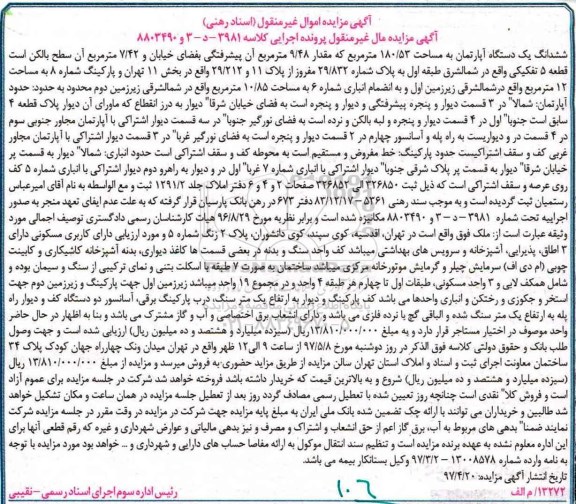 آگهی مزایده اموال غیرمنقول (اسناد رهنی)
آگهی مزایده مال غیرمنقول پرونده اجرایی کلاسه ۳۹۸۱-۵-۳ و ۸۸۰۳۴۹۰
ششدانگ یک دستگاه آپارتمان به مساحت ۱۸۰/۵۳ مترمربع که مقدار ۹/۴۸ مترمربع آن پیشرفتگی بفضای خیابان و ۷/۴۲ مترمربع آن سطح بالکن است
قطعه ۵ تفکیکی واقع در شمالشرق طبقه اول به پلاک شماره ۲۹/۸۳۲ مفروز از پلاک ۱۱ و ۲۹/۲۱۲ واقع در بخش ۱۱ تهران و پارکینگ شماره ۸ به مساحت
۱۲ مترمربع واقع درشمالشرقی زیرزمین اول و به انضمام انباری شماره ۶ به مساحت ۱۰/۸۵ مترمربع واقع در شمالشرقی زیرزمین دوم محدود به حدود: حدود
آپارتمان: شمالا" در ۳ قسمت دیوار و پنجره پیشرفتگی و دیوار و پنجره است به فضای خیابان شرقا" دیوار به درز انقطاع که ماورای آن دیوار پلاک قطعه ۴
سابق است جنوبا" اول در ۴ قسمت دیوار و پنجره و لبه بالکن و نرده است به فضای نورگیر جنوبا" در سه قسمت دیوار اشتراکی با آپارتمان مجاور جنوبی سوم
در ۴ قسمت در و دیواریست به راه پله و آسانسور چهارم در ۲ قسمت دیوار و پنجره است به فضای نورگیر غربا" در ۳ قسمت دیوار اشتراکی با آپارتمان مجاور
غربی کف و سقف اشتراکیست حدود پارکینگ: خط مفروض و مستقیم است به محوطه کف و سقف اشتراکی است حدود انباری: شمالا" دیوار به قسمت پر
خیابان شرقا" دیوار به قسمت پر پلاک شرقی جنوبا" دیوار اشتراکی با انباری شماره ۷ غربا" اول در و دیوار به راهرو دوم دیوار اشتراکی با انباری شماره ۵ کف
روی عرصه و سقف اشتراکی است که ذیل ثبت ۲۲۶۸۵۰ الی ۲۲۶۸۵۲ صفحات ۲ و ۴ و ۶ دفتر املاک جلد ۱۲۹۱/۲ ثبت و مع الواسطه به نام آقای امیرعباس
رستمیان ثبت گردیده است و به موجب سند رهنی ۵۲۶۱ - ۸۳/۱۲/۱۷ دفتر ۶۷۳ در رهن بانک پارسیان قرار گرفته که به علت عدم ایفای تعهد منجر به صدور
اجراییه تحت شماره ۳۹۸۱-۵-۳ و ۸۸۰۳۴۹۰ مکانیزه شده است و برابر نظریه مورخ ۹۶/۸/۲۹ هیات کارشناسان رسمی دادگستری توصیف اجمالی مورد
وثیقه عبارت است از: ملک فوق واقع است در تهران، اقدسیه، کوی سپند، کوی دانشوران، پلاک ۲ زنگ شماره ۵ و مورد ارزیابی دارای کاربری مسکونی دارای
۳ اطاق، پذیرایی، آشپزخانه و سرویس های بهداشتی میباشد کف واحد سنگ و بدنه در بعضی قسمت ها کاغذ دیواری، بدنه آشپزخانه کاشیکاری و کابینت
چوبی (ام دی اف) سرمایش چیلر و گرمایش موتورخانه مرکزی میباشد ساختمان به صورت ۷ طبقه با اسکلت بتنی و نمای ترکیبی از سنگ و سیمان بوده و
شامل همکف لابی و ۳ واحد مسکونی، طبقات اول تا چهارم هر طبقه ۴ واحد و در مجموع ۱۹ واحد میباشد زیرزمین اول جهت پارکینگ و زیرزمین دوم جهت
استخر و جکوزی و رختکن و انباری واحدها می باشد کف پارکینگ و دیوار به ارتفاع یک متر سنگ، درب پارکینگ برقی، آسانسور دو دستگاه کف و دیوار راه
پله به ارتفاع یک متر سنگ شده و الباقی گچ با نرده فلزی می باشد و دارای انشعاب برق اختصاصی و آب و گاز مشترک می باشد و بنا به اظهار در حال حاضر
واحد موصوف در اختیار مستاجر قرار دارد و به مبلغ ۱۳/۸۱۰/۰۰۰/۰۰۰ریال (سیزده میلیارد و هشتصد و ده میلیون ریال) ارزیابی شده است و جهت وصول
طلب بانک و حقوق دولتی کلاسه فوق الذکر در روز دوشنبه مورخ ۹۷/۵/۸ از ساعت ۹ الی۱۲ ظهر واقع در تهران میدان ونک چهارراه جهان کودک پلاک ۳۴
ساختمان معاونت اجرای ثبت و اسناد و املاک استان تهران سالن مزایده از طریق مزاید حضوری به فروش میرسد و مزایده از مبلغ ۱۳/۸۱۰/۰۰۰/۰۰۰ ریال
(سیزده میلیارد و هشتصد و ده میلیون ریال) شروع و به بالاترین قیمت که خریدار داشته باشد فروخته خواهد شد شرکت در جلسه مزایده برای عموم آزاد
است و فروش کلا" نقدی است چنانچه روز تعیین شده با تعطیل رسمی مصادف گردد روز بعد از تعطیل جلسه مزایده در همان ساعت و مکان تشکیل خواهد
شد طالبین و خریداران می توانند با ارائه چک تضمین شده بانک ملی ایران به مبلغ پایه مزایده جهت شرکت در مزایده در وقت مقرر در جلسه مزایده شرکت
نمایند ضمنا" بدهی های مربوط به آب، برق گاز اعم از حق انشعاب و اشتراک و مصرف و نیز بدهی مالیاتی و عوارض شهرداری و غیره که رقم قطعی آنها برای
این اداره معلوم نشده به عهده برنده مزایده است و تنظیم سند انتقال موکول به ارائه مفاصا حساب های دارایی و شهرداری و ... خواهد بود مورد مزایده با توجه
به نامه وارده شماره ۱۳۰۰۸۵۷۸ - ۹۷/۳/۲ وکیل بستانکار بیمه می باشد.
تاریخ انتشار آگهی مزایده: ۹۷/۴/۲۰
۱۳۲۷۲/ م الف
رئیس اداره سوم اجرای اسناد رسمی - نقیبی
۱۰۶